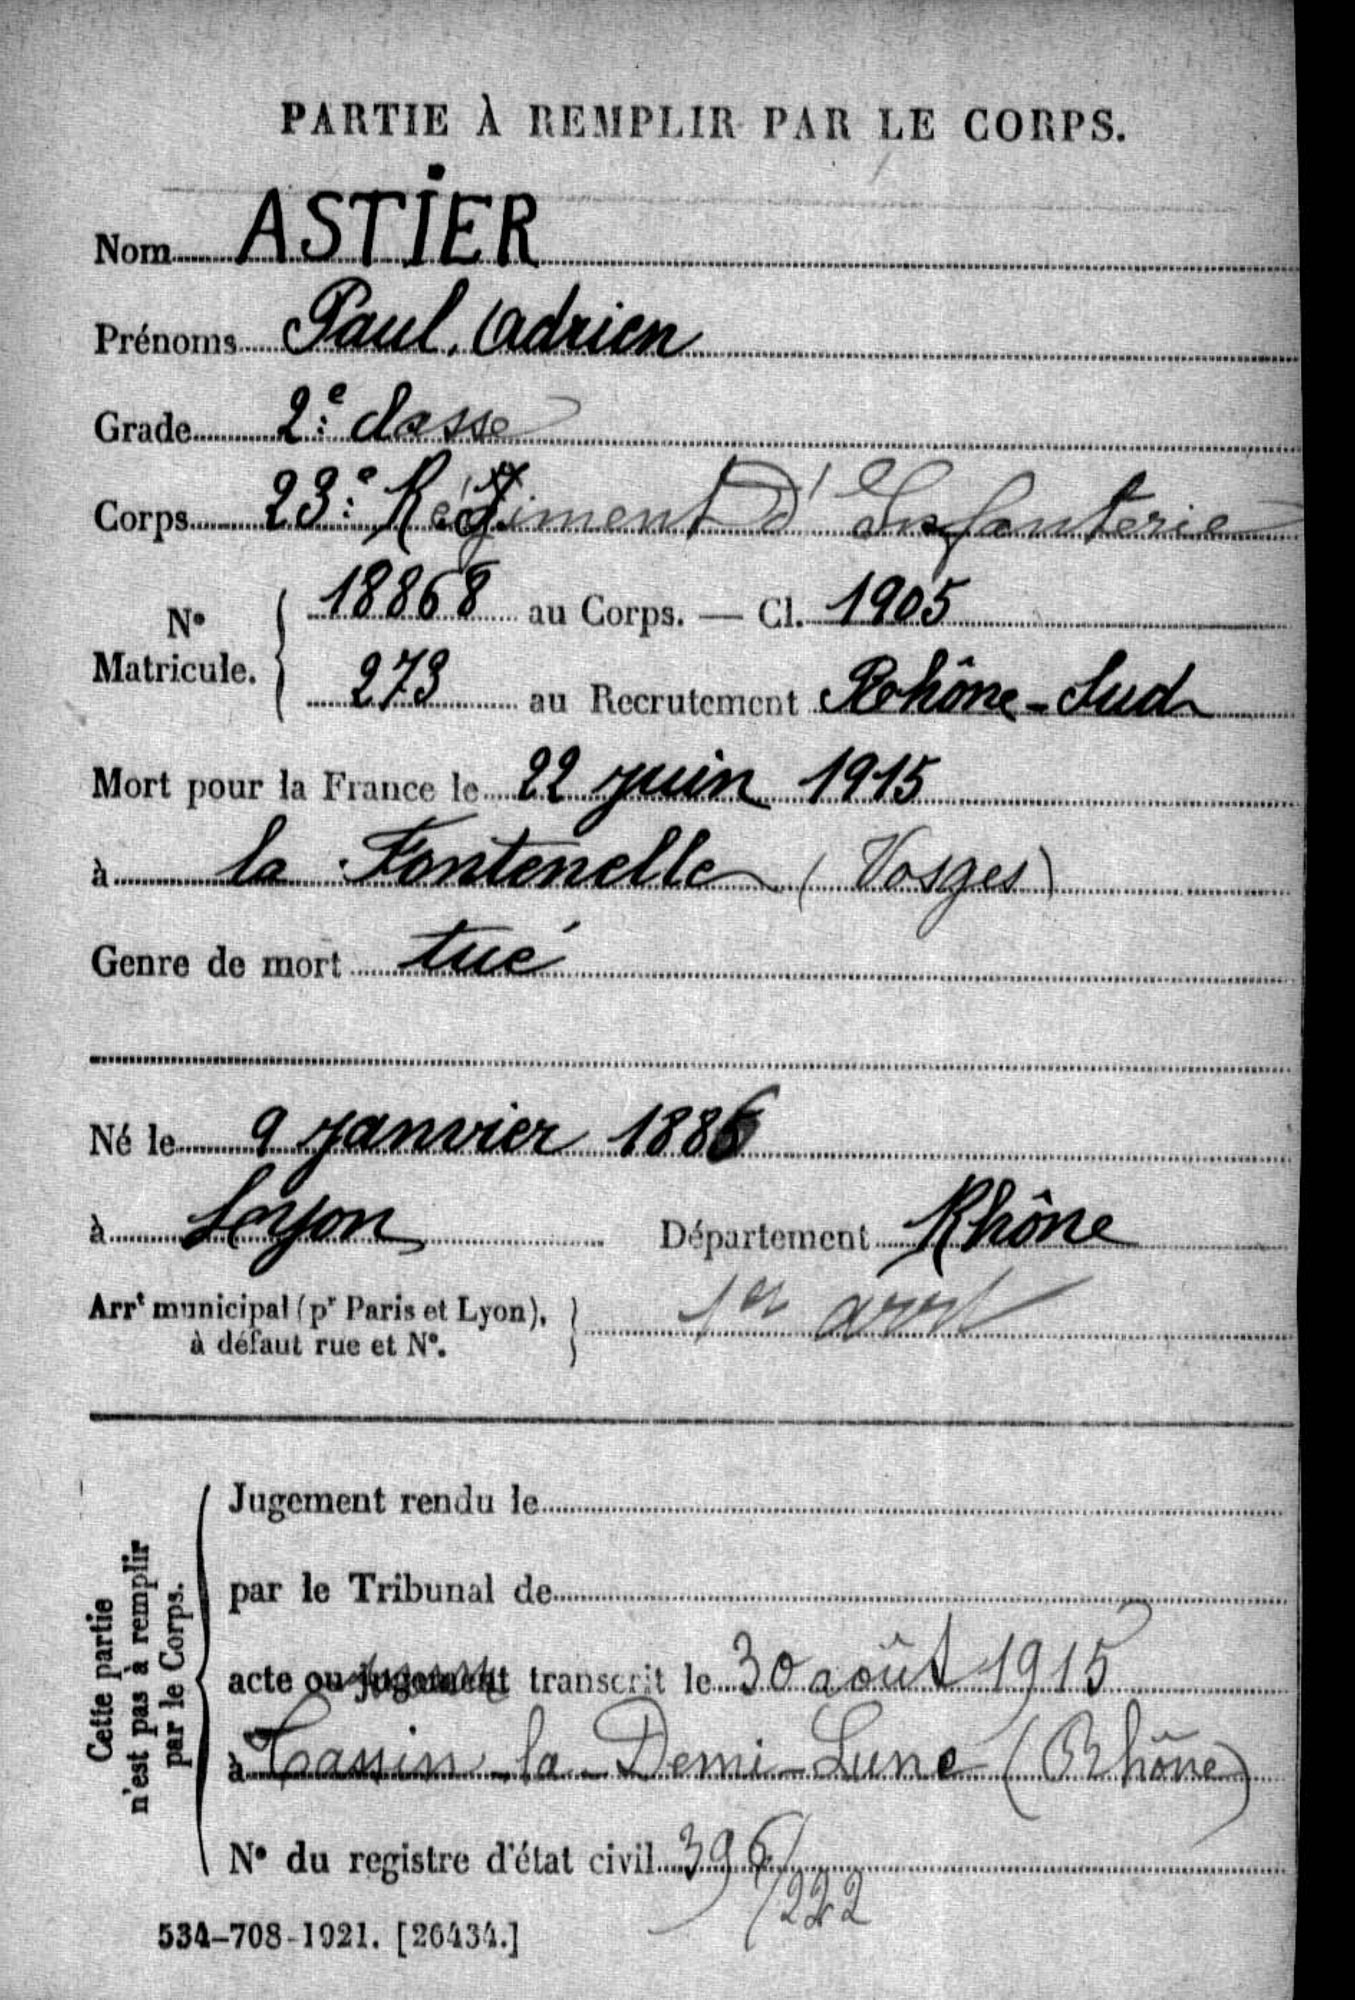 PARTIE À REMPLIR PAR LE CORPS.
Nom ASTIER
Prénoms Paul, Adrien
Grade 2e classe
Corps 23e Régiment D'Infanterie
No Matricule. { 18868 au Corps. — Cl. 1905
273 au Recrutement Rhône-Sud
Mort pour la France le 22 juin 1915
à la Fontenelle (Vosges)
Genre de mort tué
Né le 9 janvier 1886
à Lyon Département Rhône
Arrt municipal (pr Paris et Lyon), } 1er arrt
à défaut rue et No.
Cette partie
n'est pas à remplir
par le Corps.
Jugement rendu le
par le Tribunal de
acte ou jugement transcrit le 30 août 1915
à Tassin-la-Demi-Lune (Rhône)
No du registre d'état civil 396/222
534-708-1921. [26434.]